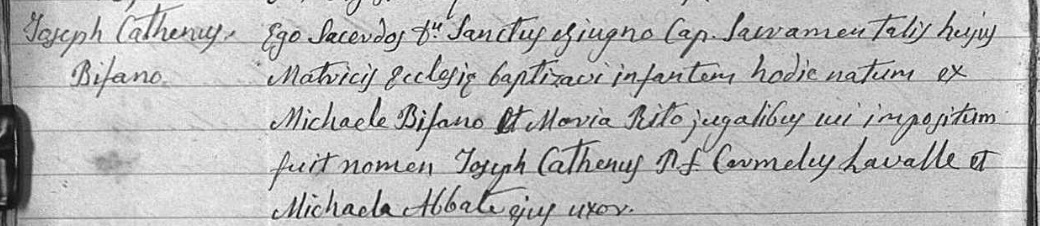 Joseph Cathenus
Bifano
Ego Sacerdos Dn Sanctus Giugno Cap. Sacramentalis hujus
Matricis Ecclesię baptizavi infantem hodie natum ex
Michaele Bifano et Maria Rito jugalibus cui impositum
fuit nomen Joseph Cathenus P. f. Carmelus Lavalle et
Michaela Abbate ejus uxor.